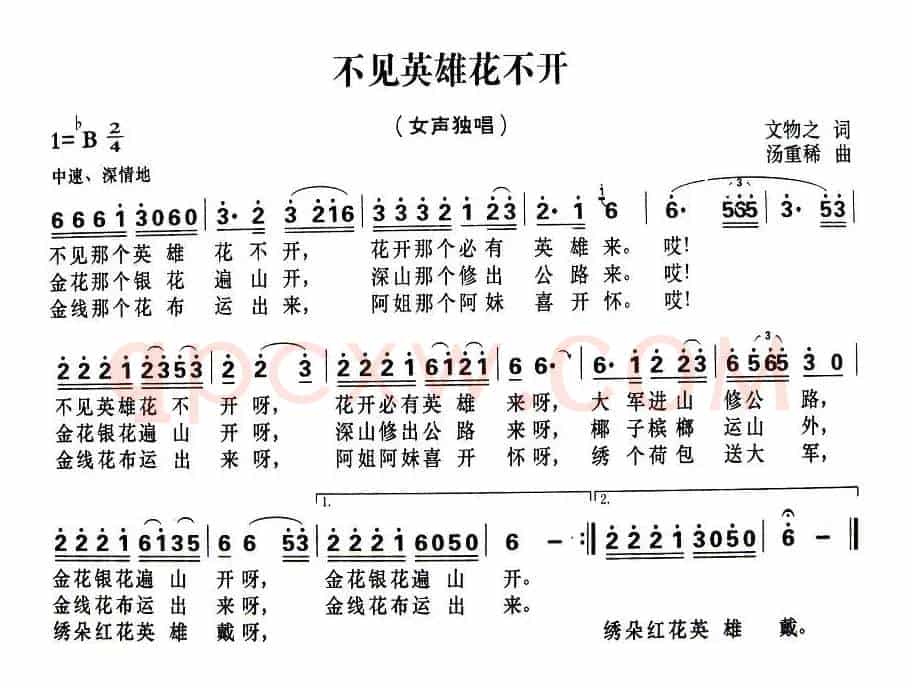 不见英雄花不开
(女声独唱)
1=♭B 2/4
文物之 词
汤重稀 曲
中速、深情地
6 6 6 1 3 0 6 0 | 3· 2 3 2 1 6 | 3 3 3 2 1 2 3 | 2· 1 6 | 6· 5 6 5 | 3· 5 3 |
不见那个英雄 花不开, 花开那个必有 英雄来。哎!
金花那个银花 遍山开, 深山那个修出 公路来。哎!
金线那个花布 运出来, 阿姐那个阿妹 喜开怀。哎!
2 2 2 1 2 3 5 3 | 2 2 3 | 2 2 2 1 6 1 2 1 | 6 6· | 6· 1 2 2 3 | 6 5 6 5 3 0 |
不见英雄花不 开呀, 花开必有英雄 来呀, 大军进山 修公路,
金花银花遍山 开呀, 深山修出公路 来呀, 椰子槟榔 运山外,
金线花布运出 来呀, 阿姐阿妹喜开 怀呀, 绣个荷包 送大军,
1.
2.
2 2 2 1 6 1 3 5 | 6 6 5 3 | 2 2 2 1 6 0 5 0 | 6 – :‖ 2 2 2 1 3 0 5 0 | 6 – ‖
金花银花遍山 开呀, 金花银花遍山 开。
金线花布运出 来呀, 金线花布运出 来。
绣朵红花英雄 戴呀, 绣朵红花英雄 戴。
qpcxw.com